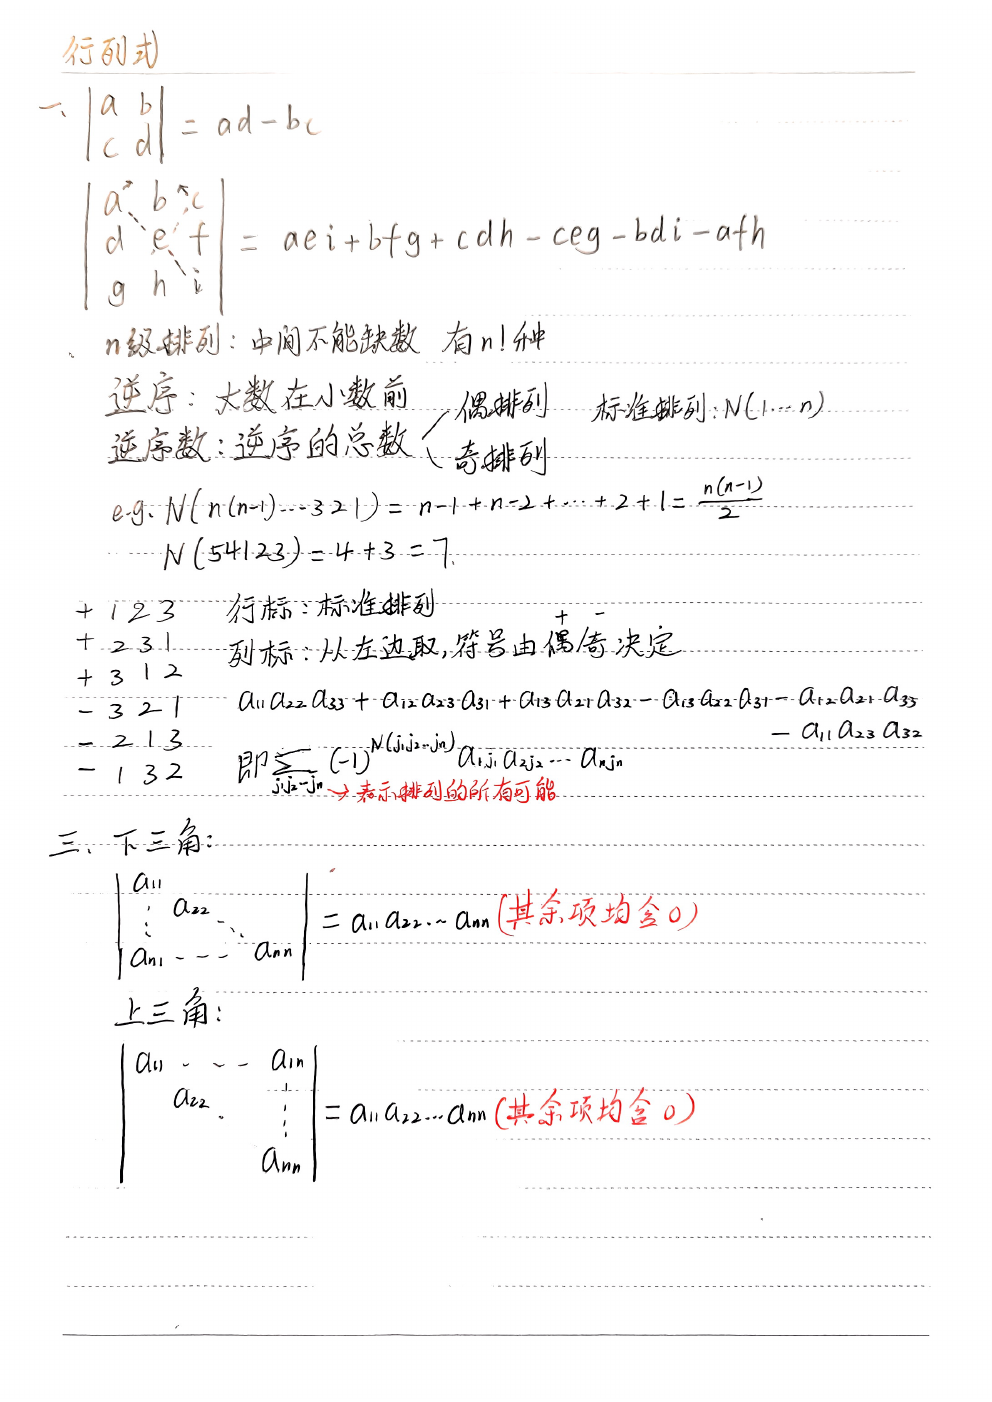 行列式
一、|a b; c d| = ad-bc
|a b c; d e f; g h i| = aei+bfg+cdh-ceg-bdi-afh
n级排列：中间不能缺数 有n!种
逆序：大数在小数前
偶排列 标准排列:N(1…n)
逆序数：逆序的总数
奇排列
e.g. N(n(n-1)…321) = n-1+n-2+…+2+1 = n(n-1)/2
N(54123) = 4+3 = 7.
+ 1 2 3 行标：标准排列
+ 2 3 1 列标：从左边取，符号由偶奇决定
+ -
+ 3 1 2
- 3 2 1 a₁₁a₂₂a₃₃ + a₁₂a₂₃a₃₁ + a₁₃a₂₁a₃₂ - a₁₃a₂₂a₃₁ - a₁₂a₂₁a₃₃
- 2 1 3 - a₁₁a₂₃a₃₂
- 1 3 2 即 ∑_{j₁j₂…jₙ} (-1)^{N(j₁j₂…jₙ)} a_{1j₁} a_{2j₂} … a_{njₙ}
→表示排列的所有可能
三、下三角：
|a₁₁
⋮ a₂₂ ⋱
aₙ₁ - - - aₙₙ| = a₁₁a₂₂…aₙₙ (其余项均含0)
上三角：
|a₁₁ - - - a₁ₙ
a₂₂ . ⋮
aₙₙ| = a₁₁a₂₂…aₙₙ (其余项均含0)